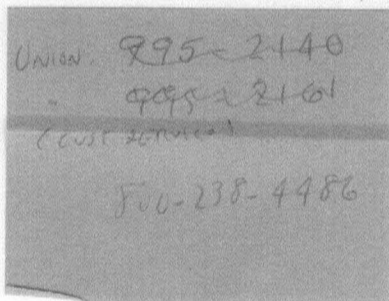 UNION. 995-2140
" 995-2161
(CUST SERVICE)
800-238-4486